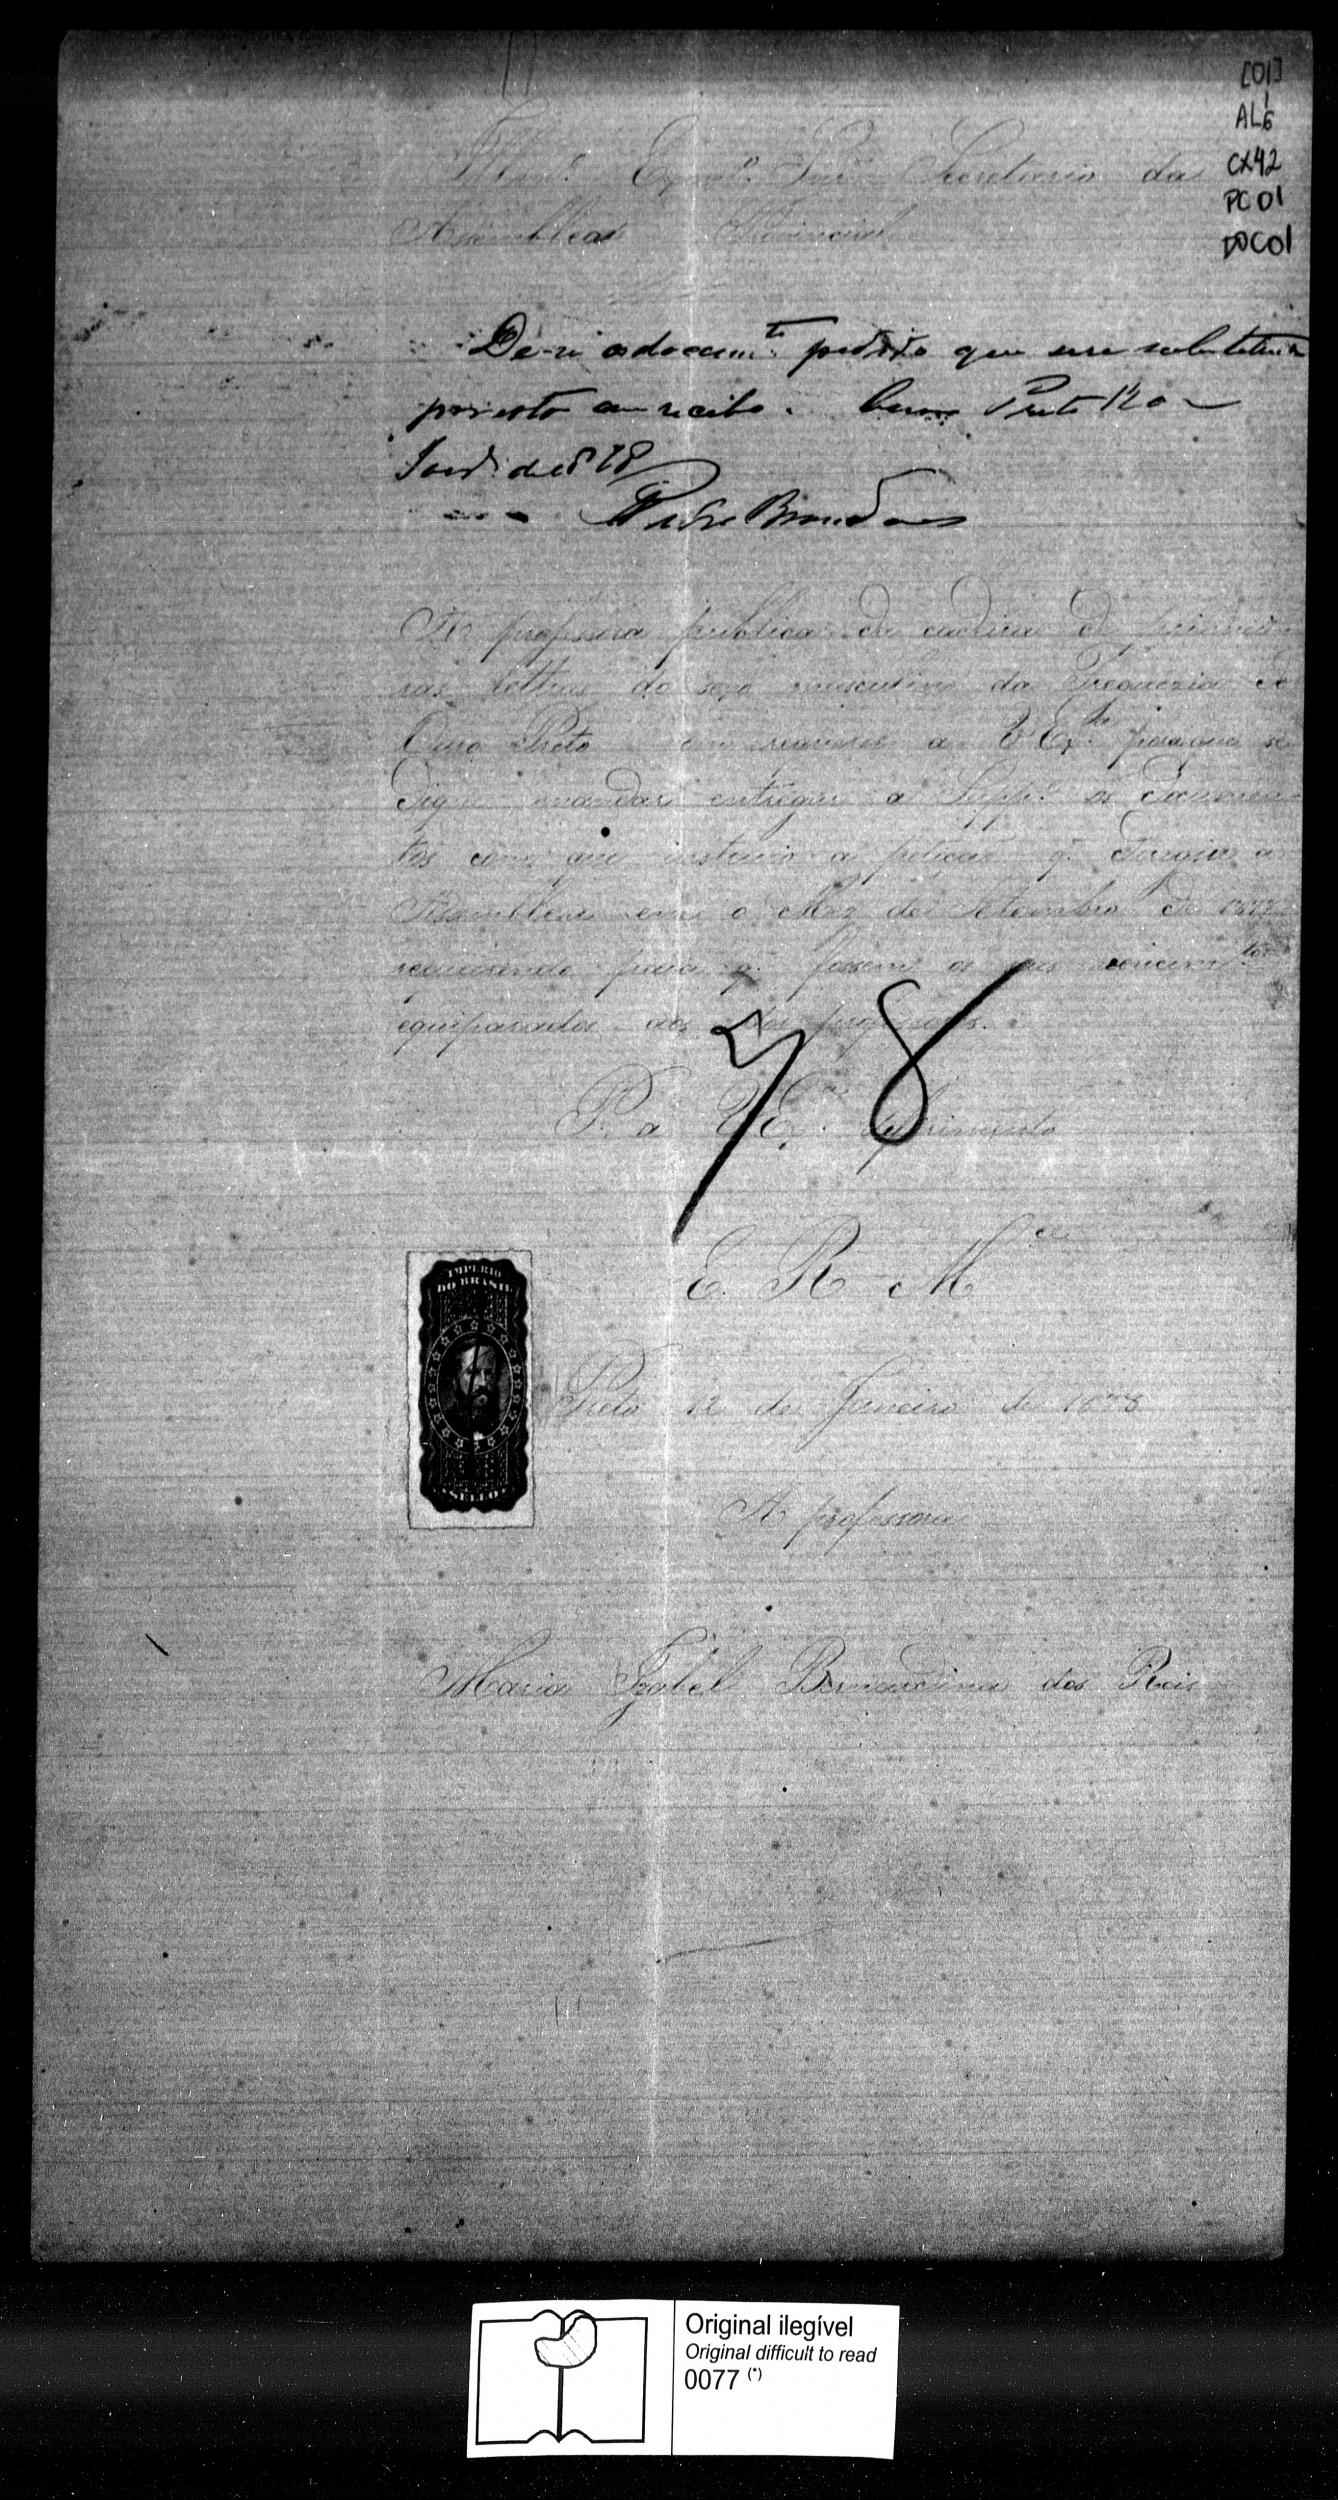 [01]
AL6
CX42
PC01
DOC01
Illmo. Exmo. Snr. Secretario da
Assemblea Provincial
De-se o documto. pedido que sera substituido
por esto com recibo. Ouro Preto 12 de
Janro. de 1878
Pedro Brandão
A professora publica da cadeira de primei-
ras lettras do sexo masculino da Freguezia de
Ouro Preto vem requerer a V Exa. para que se
digne mandar entregar a Suppe. os documen-
tos com que instruio a petição q. dirigio a
Assemblea em o Mez de Setembro de 1877
requerendo para q. fossem os seus vencimtos
equiparados aos dos professores.
78
P. a V Exa. deferimento
E. R. Mce
IMPERIO
DO BRASIL
SELLO
Preto 12 de Janeiro de 1878
A professora
Maria Izabel Bernardina dos Reis
Original ilegível
Original difficult to read
0077 (*)